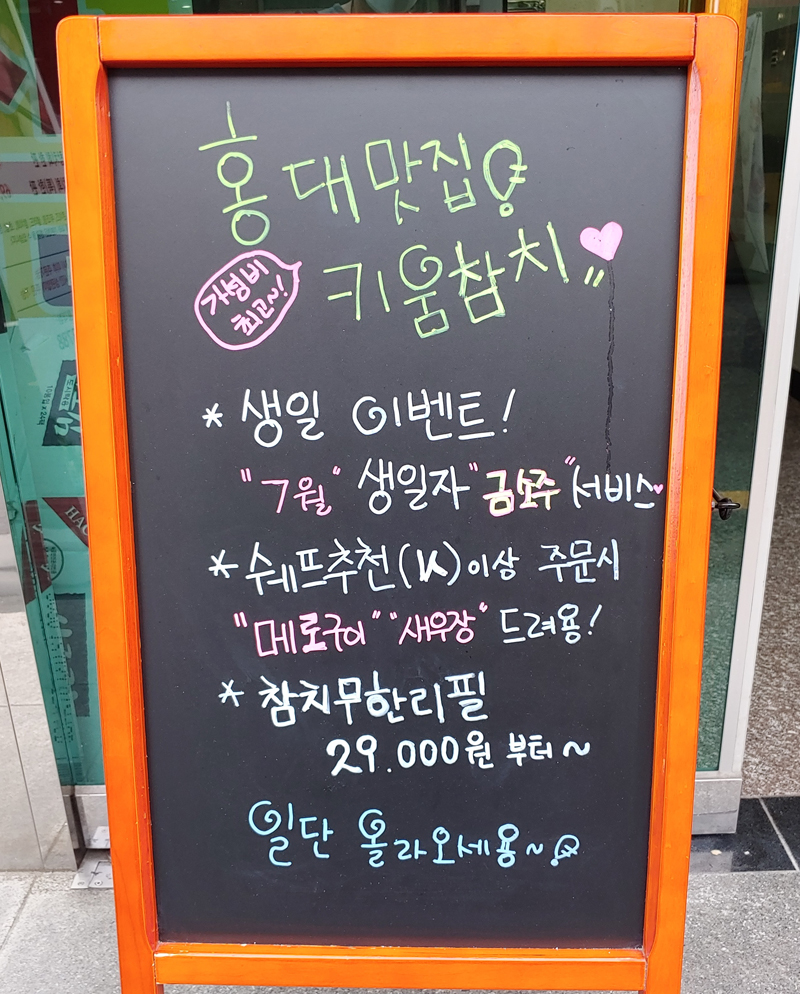 홍대맛집!
가성비
최고~!
키움참치
* 생일 이벤트!
"7월" 생일자 "금소주" 서비스
* 쉐프추천(K)이상 주문시
"메로구이" "새우장" 드려용!
* 참치무한리필
29.000원 부터~
일단 올라오세용~